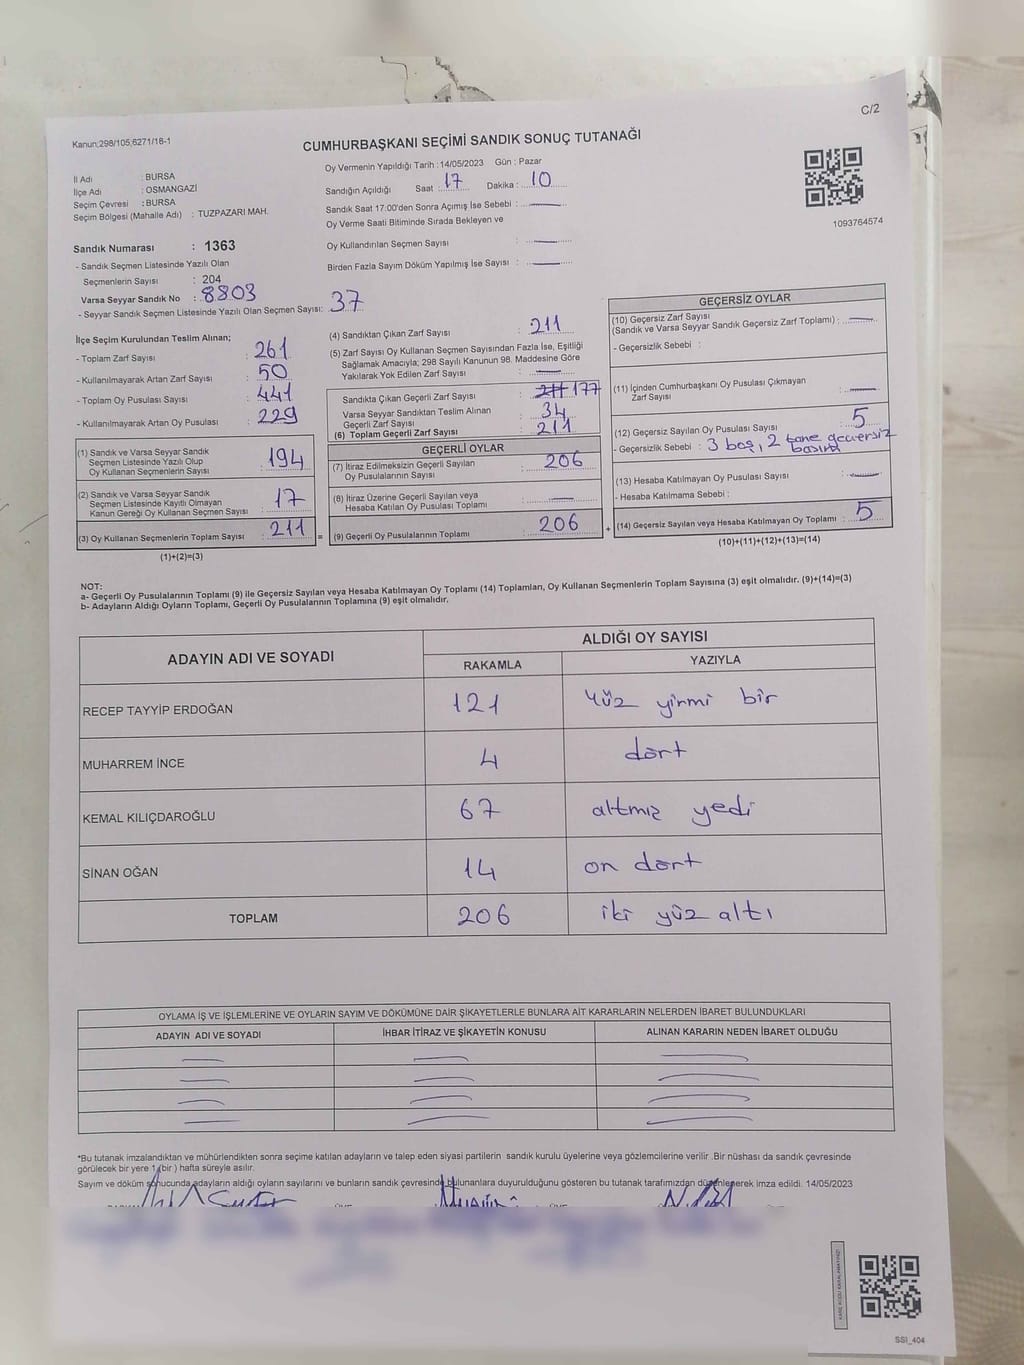 C/2
Kanun;298/105;6271/16-1
CUMHURBAŞKANI SEÇİMİ SANDIK SONUÇ TUTANAĞI
İl Adı : BURSA
İlçe Adı : OSMANGAZİ
Seçim Çevresi : BURSA
Seçim Bölgesi (Mahalle Adı) : TUZPAZARI MAH.
Oy Vermenin Yapıldığı Tarih : 14/05/2023 Gün : Pazar
Sandığın Açıldığı Saat : 17 Dakika : 10
Sandık Saat 17:00'den Sonra Açımış İse Sebebi :
Oy Verme Saati Bitiminde Sırada Bekleyen ve
Oy Kullandırılan Seçmen Sayısı :
Birden Fazla Sayım Döküm Yapılmış İse Sayısı :
1093764574
Sandık Numarası : 1363
- Sandık Seçmen Listesinde Yazılı Olan
Seçmenlerin Sayısı : 204
Varsa Seyyar Sandık No : 8803
- Seyyar Sandık Seçmen Listesinde Yazılı Olan Seçmen Sayısı: 37
İlçe Seçim Kurulundan Teslim Alınan;
- Toplam Zarf Sayısı : 261
- Kullanılmayarak Artan Zarf Sayısı : 50
- Toplam Oy Pusulası Sayısı : 441
- Kullanılmayarak Artan Oy Pusulası : 229
(1) Sandık ve Varsa Seyyar Sandık
Seçmen Listesinde Yazılı Olup
Oy Kullanan Seçmenlerin Sayısı : 194
(2) Sandık ve Varsa Seyyar Sandık
Seçmen Listesinde Kayıtlı Olmayan
Kanun Gereği Oy Kullanan Seçmen Sayısı : 17
(3) Oy Kullanan Seçmenlerin Toplam Sayısı : 211
(1)+(2)=(3)
(4) Sandıktan Çıkan Zarf Sayısı : 211
(5) Zarf Sayısı Oy Kullanan Seçmen Sayısından Fazla İse, Eşitliği
Sağlamak Amacıyla; 298 Sayılı Kanunun 98. Maddesine Göre
Yakılarak Yok Edilen Zarf Sayısı :
Sandıkta Çıkan Geçerli Zarf Sayısı : 211 177
Varsa Seyyar Sandıktan Teslim Alınan
Geçerli Zarf Sayısı : 34
(6) Toplam Geçerli Zarf Sayısı : 211
GEÇERLİ OYLAR
(7) İtiraz Edilmeksizin Geçerli Sayılan
Oy Pusulalarının Sayısı : 206
(8) İtiraz Üzerine Geçerli Sayılan veya
Hesaba Katılan Oy Pusulası Toplamı :
= (9) Geçerli Oy Pusulalarının Toplamı : 206 +
GEÇERSİZ OYLAR
(10) Geçersiz Zarf Sayısı
(Sandık ve Varsa Seyyar Sandık Geçersiz Zarf Toplamı) :
- Geçersizlik Sebebi :
(11) İçinden Cumhurbaşkanı Oy Pusulası Çıkmayan
Zarf Sayısı :
(12) Geçersiz Sayılan Oy Pusulası Sayısı : 5
- Geçersizlik Sebebi : 3 boş, 2 tane geçersiz
(13) Hesaba Katılmayan Oy Pusulası Sayısı :
- Hesaba Katılmama Sebebi :
(14) Geçersiz Sayılan veya Hesaba Katılmayan Oy Toplamı : 5
(10)+(11)+(12)+(13)=(14)
NOT:
a- Geçerli Oy Pusulalarının Toplamı (9) ile Geçersiz Sayılan veya Hesaba Katılmayan Oy Toplamı (14) Toplamları, Oy Kullanan Seçmenlerin Toplam Sayısına (3) eşit olmalıdır. (9)+(14)=(3)
b- Adayların Aldığı Oyların Toplamı, Geçerli Oy Pusulalarının Toplamına (9) eşit olmalıdır.
ADAYIN ADI VE SOYADI ALDIĞI OY SAYISI
RAKAMLA YAZIYLA
RECEP TAYYİP ERDOĞAN 121 Yüz yirmi bir
MUHARREM İNCE 4 dört
KEMAL KILIÇDAROĞLU 67 altmız yedi
SİNAN OĞAN 14 on dört
TOPLAM 206 iki yüz altı
OYLAMA İŞ VE İŞLEMLERİNE VE OYLARIN SAYIM VE DÖKÜMÜNE DAİR ŞİKAYETLERLE BUNLARA AİT KARARLARIN NELERDEN İBARET BULUNDUKLARI
ADAYIN ADI VE SOYADI İHBAR İTİRAZ VE ŞİKAYETİN KONUSU ALINAN KARARIN NEDEN İBARET OLDUĞU
*Bu tutanak imzalandıktan ve mühürlendikten sonra seçime katılan adayların ve talep eden siyasi partilerin sandık kurulu üyelerine veya gözlemcilerine verilir .Bir nüshası da sandık çevresinde
görülecek bir yere 1 (bir ) hafta süreyle asılır.
Sayım ve döküm sonucunda adayların aldığı oyların sayılarını ve bunların sandık çevresinde bulunanlara duyurulduğunu gösteren bu tutanak tarafımızdan düzenlenerek imza edildi. 14/05/2023
SSI_404